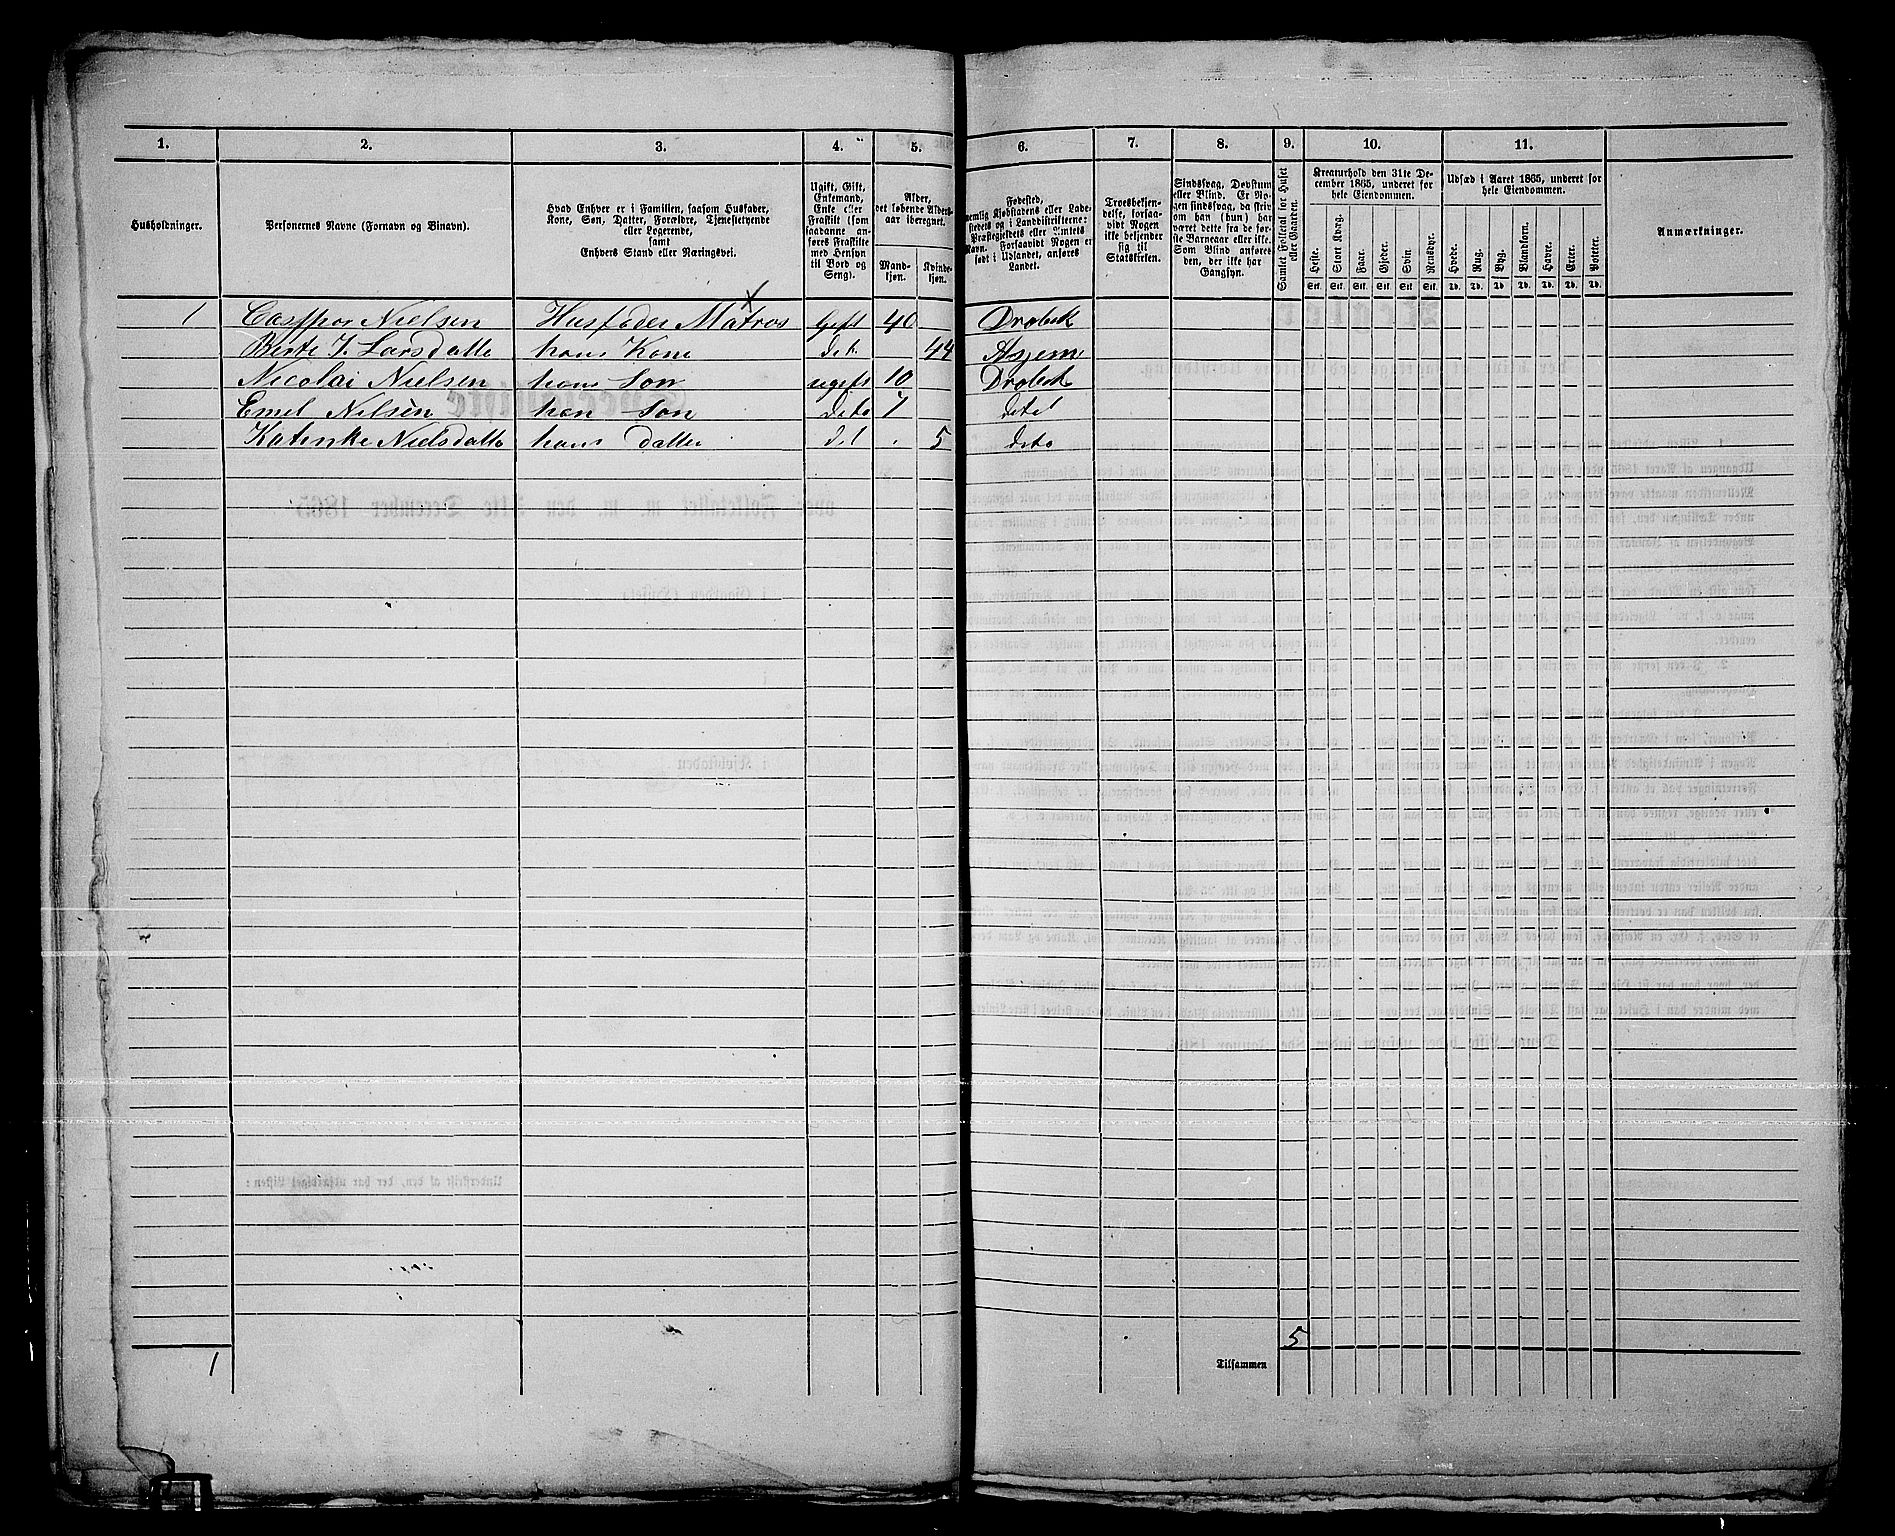 1. 2. 3. 4. 5. 6. 7. 8. 9. 10. 11.
Husholdninger.
Personernes Navne (Fornavn og Binavn).
Hvad Enhver er i Familien, saasom Husfader,
Kone, Søn, Datter, Forældre, Tjenestetyende
eller Logerende,
samt
Enhvers Stand eller Næringsvei.
Ugift, Gift,
Enkemand,
Enke eller
Fraskilt (som
saadanne an-
føres Fraskilte
med Hensyn
til Bord og
Seng).
Alder,
det løbende Alders-
aar iberegnet.
Mand-
kjøn.
Kvinde-
kjøn.
Fødested,
nemlig Kjøbstadens eller Lade-
stedets og i Landdistrikterne:
Præstegjeldets eller Amtets
Navn. Forsaavidt Nogen er
født i Udlandet, anføres
Landet.
Troesbekjen-
delse, forsaa-
vidt Nogen
ikke bekjender
sig til
Statskirken.
Sindssvag, Døvstum
eller Blind. Er No-
gen sindssvag, da skriv
om han (hun) har
været dette fra de før-
ste Barneaar eller ikke.
Som Blind anføres
den, der ikke har
Gangsyn.
Samlet Folketal for Huset
eller Gaarden.
Kreaturhold den 31te De-
cember 1865, underet for
hele Eiendommen.
Heste. Stort Kvæg. Faar. Gjeder. Svin Rensdyr.
Stk. Stk. Stk. Stk. Stk. Stk.
Udsæd i Aaret 1865, underet for
hele Eiendommen.
Hvede. Rug. Byg. Blandkorn. Havre. Erter. Poteter.
Td. Td. Td. Td. Td. Td. Td.
Anmærkninger.
1 Casspar Nielsen Husfader Matros Gift 40 Drøbak
Berte J. Larsdatte hans Kone det 44
Nicolai Nielsen hans Søn ugift 10 Drøbak
Emel Nilsen han Søn deto 7
Katinke Nielsdatte hans datter det 5 deto
5
1
Tilsammen